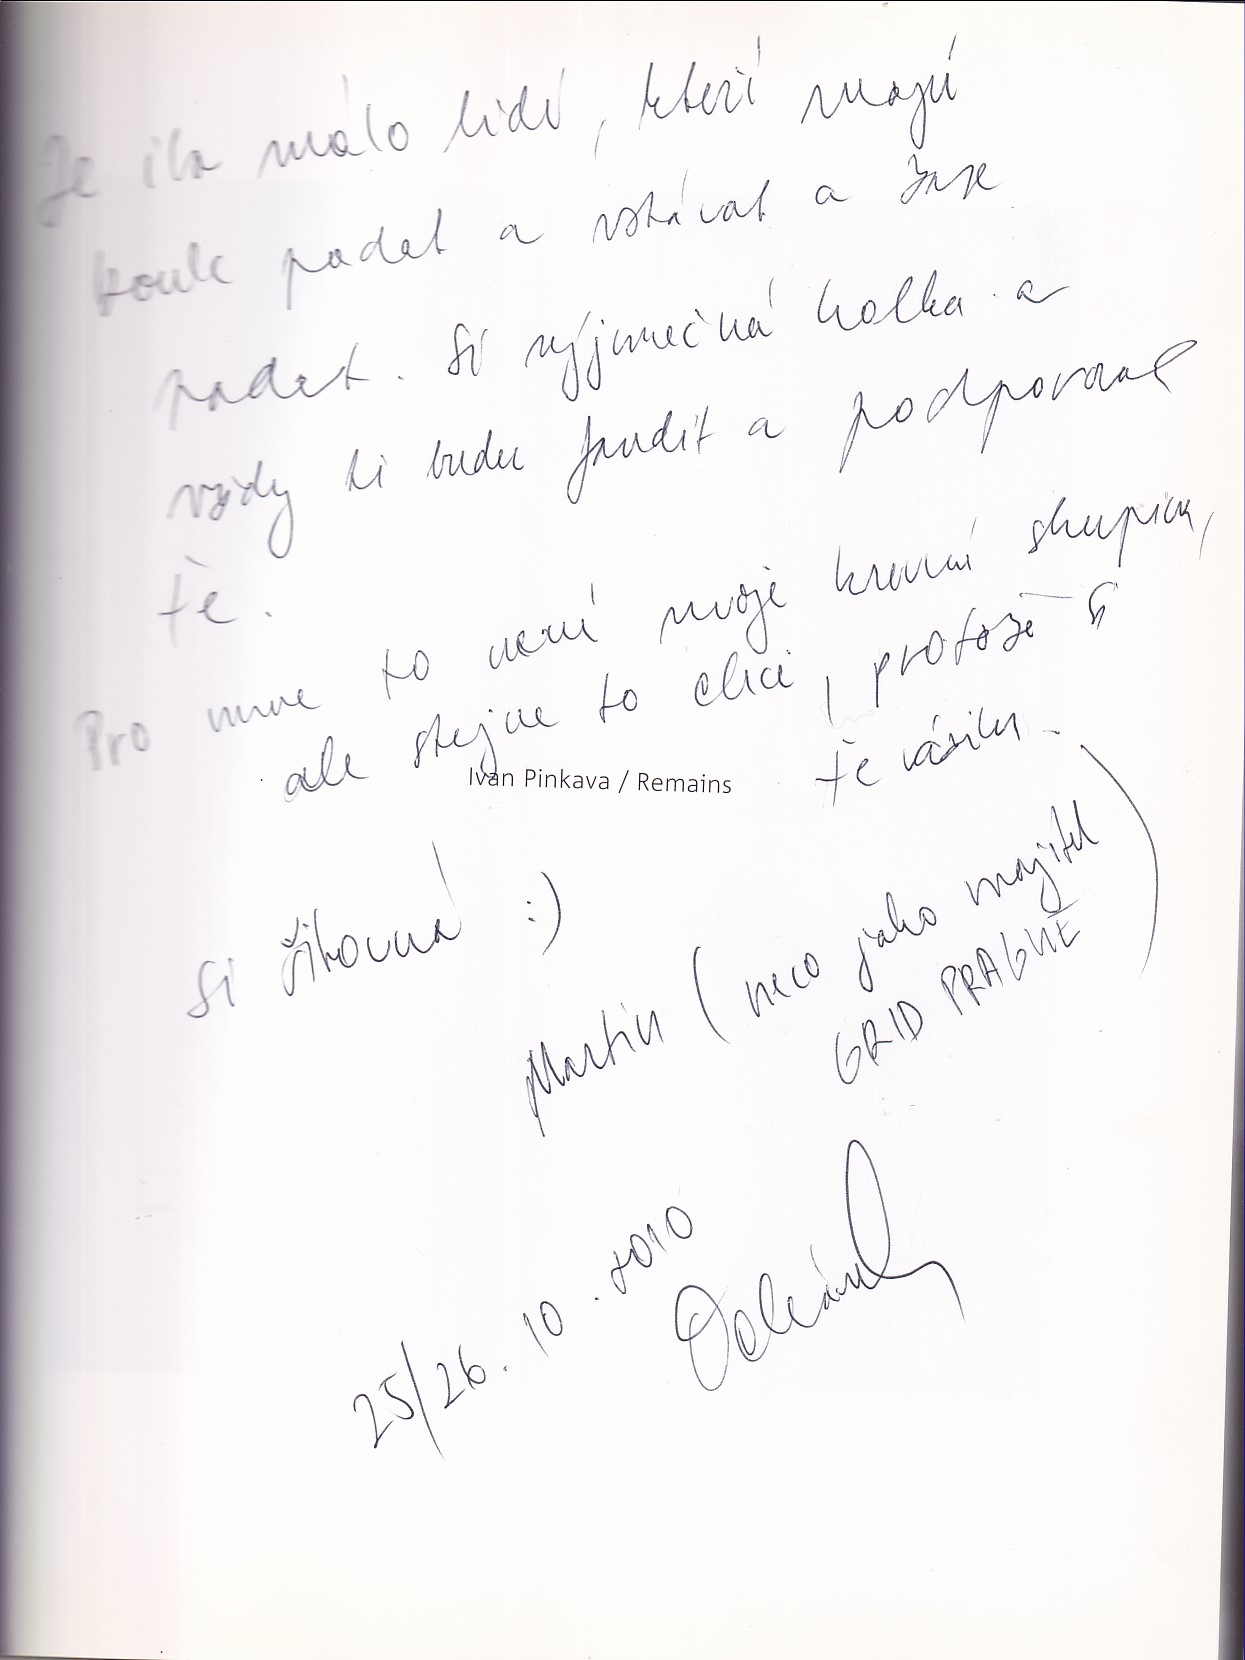 Je ila málo lidí, kteří mají
koule padat a vstávat a zase
padat. Si výjimečná holka a
vždy ti budu fandit a podporovat
tě.
Pro mne to není moje krevní skupina,
ale stejne to chci, protože si
tě vážím.
Ivan Pinkava / Remains
Si šikovná :)
Martin (neco jako majitel
GRID PRAGUE)
25/26.10.2010